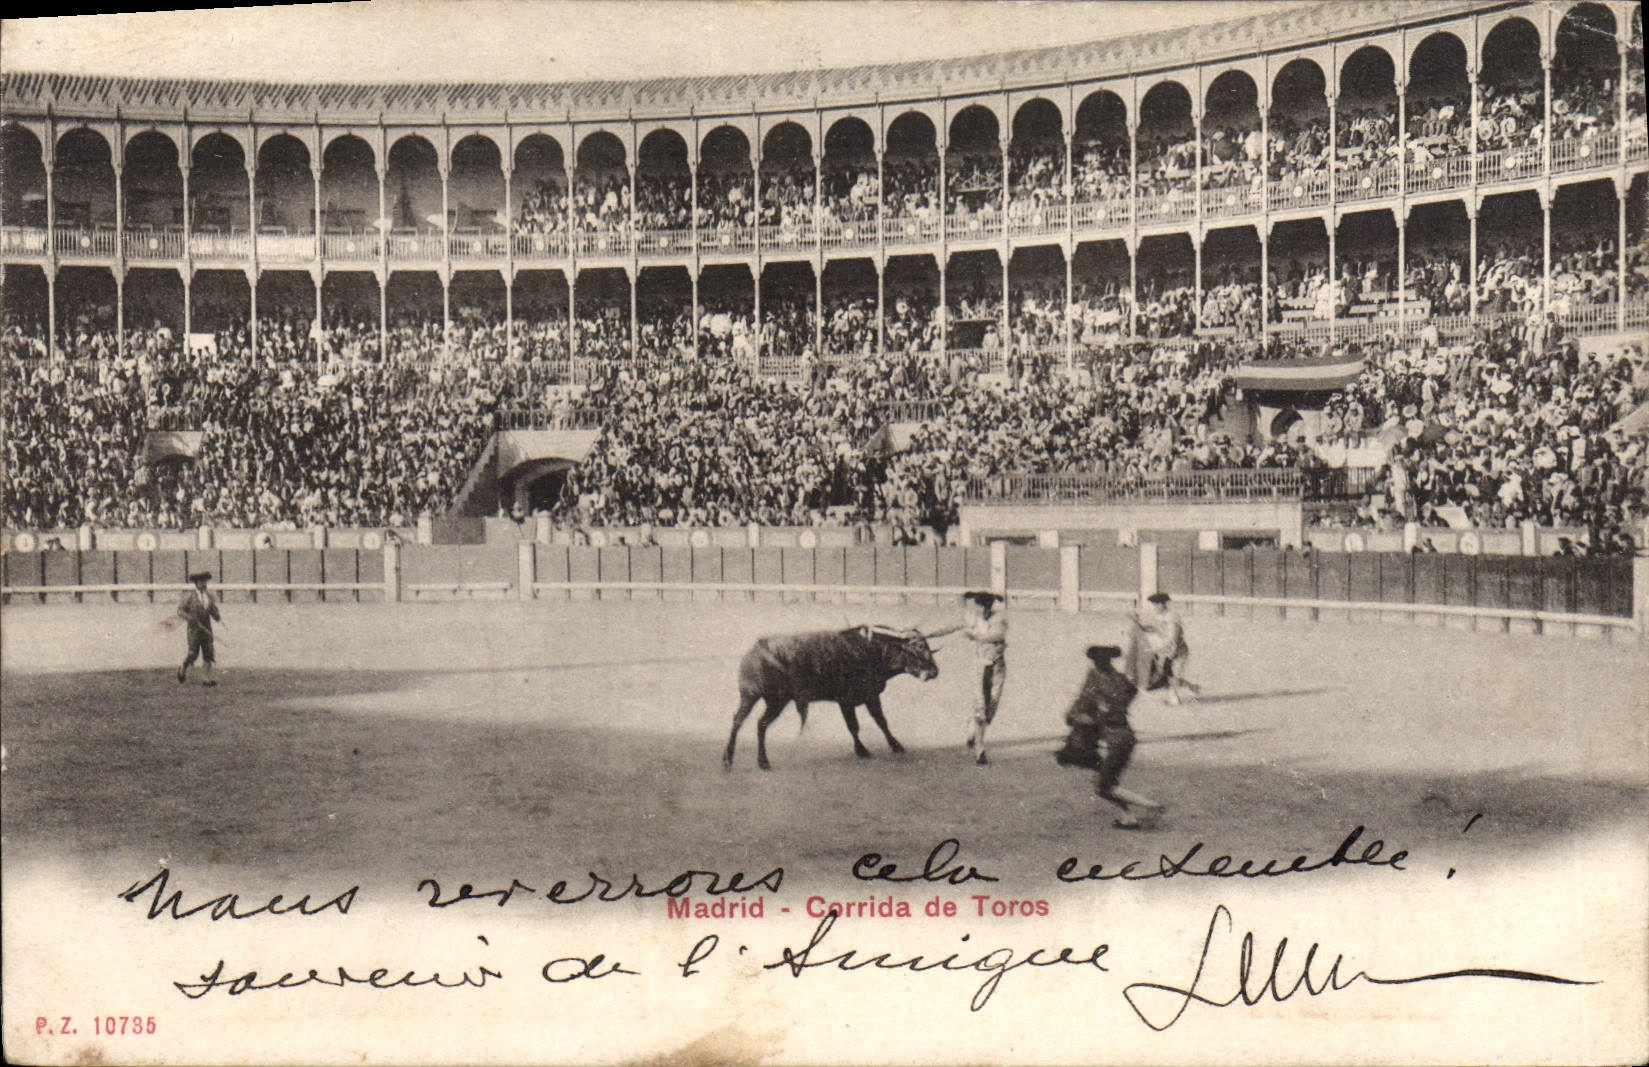 Nous reverrons cela ensemble !
Madrid - Corrida de Toros
souvenir de l'
P. Z. 10735